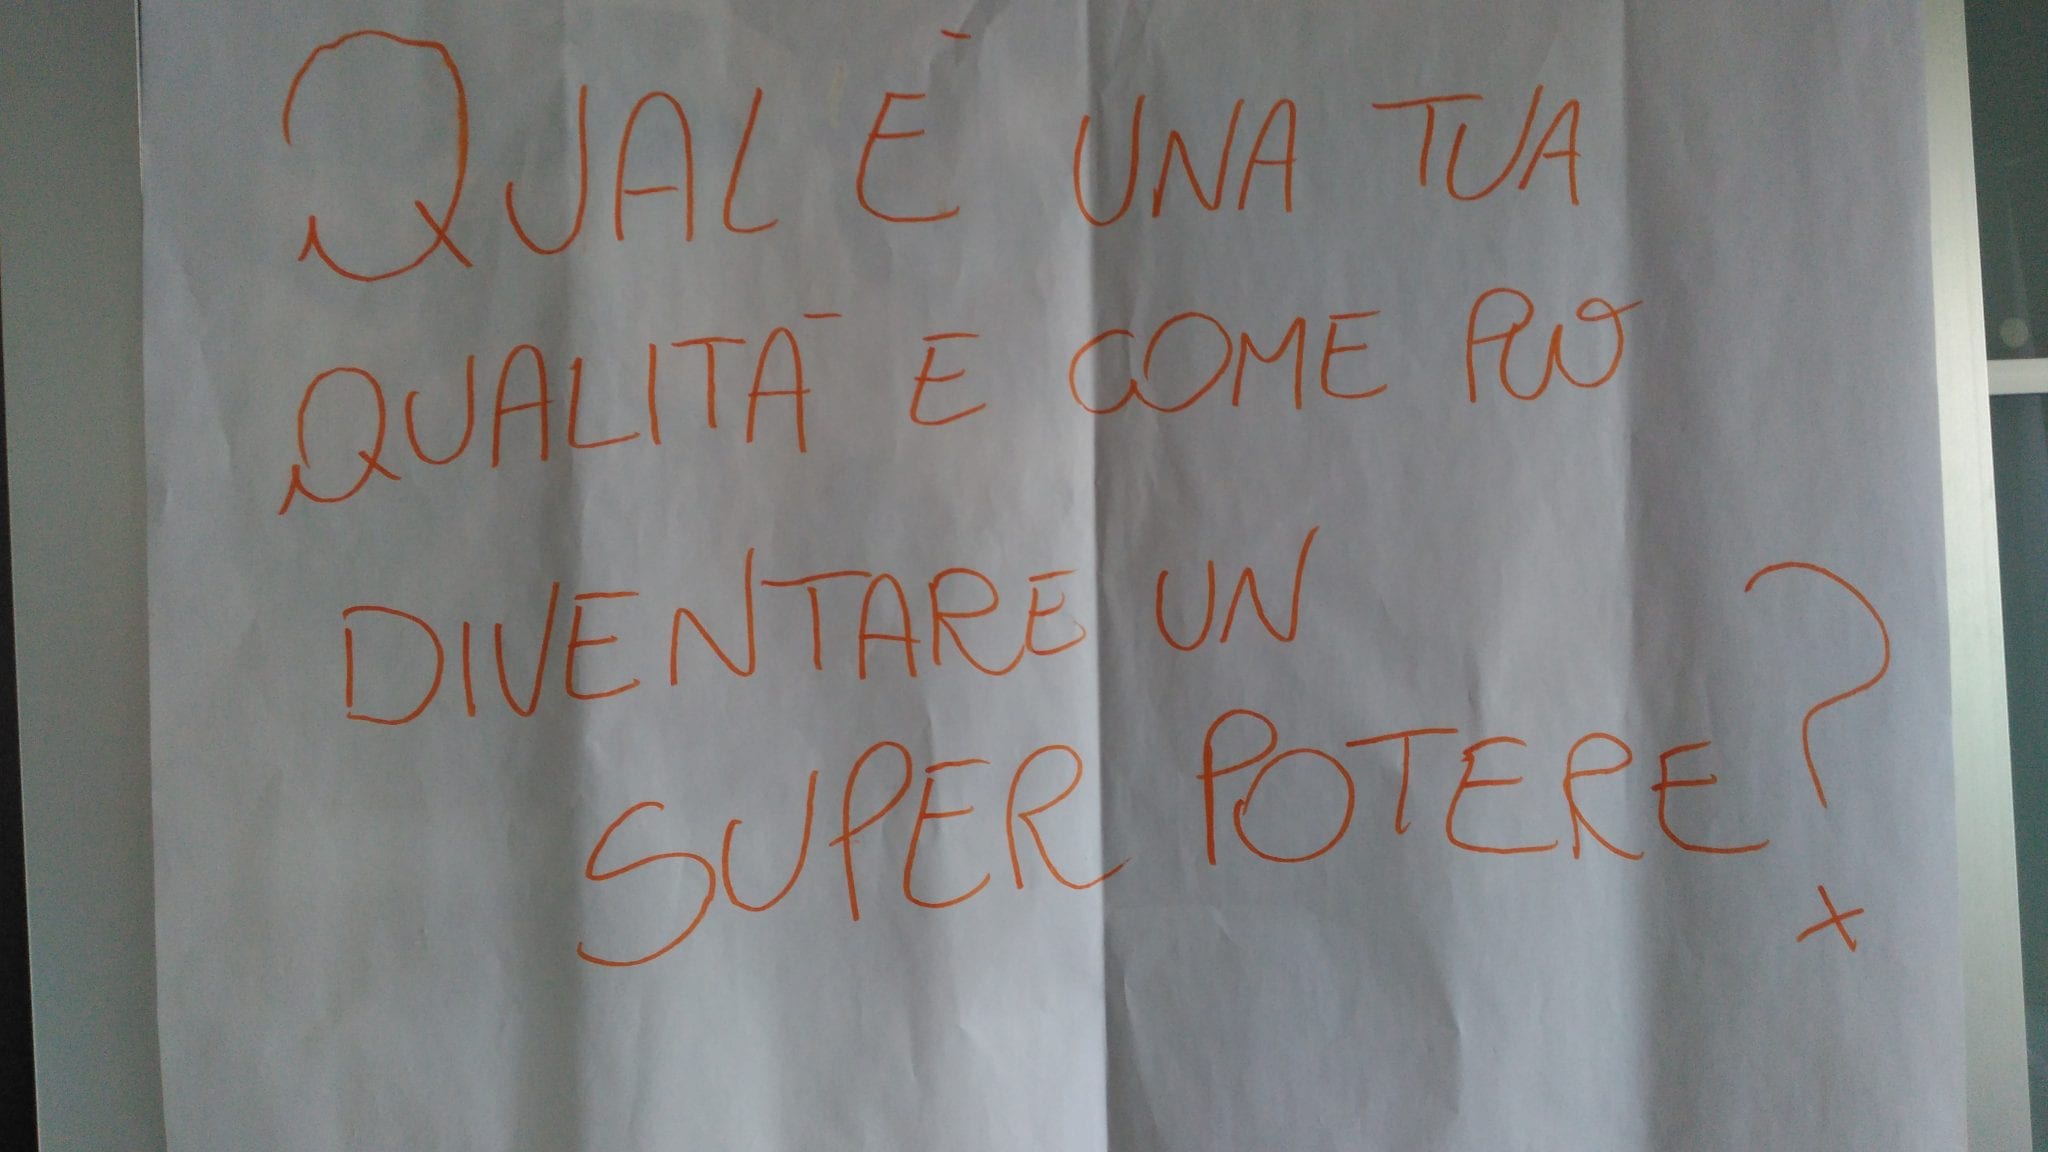 QUAL È UNA TUA
QUALITÀ E COME PUÒ
DIVENTARE UN
SUPER POTERE?